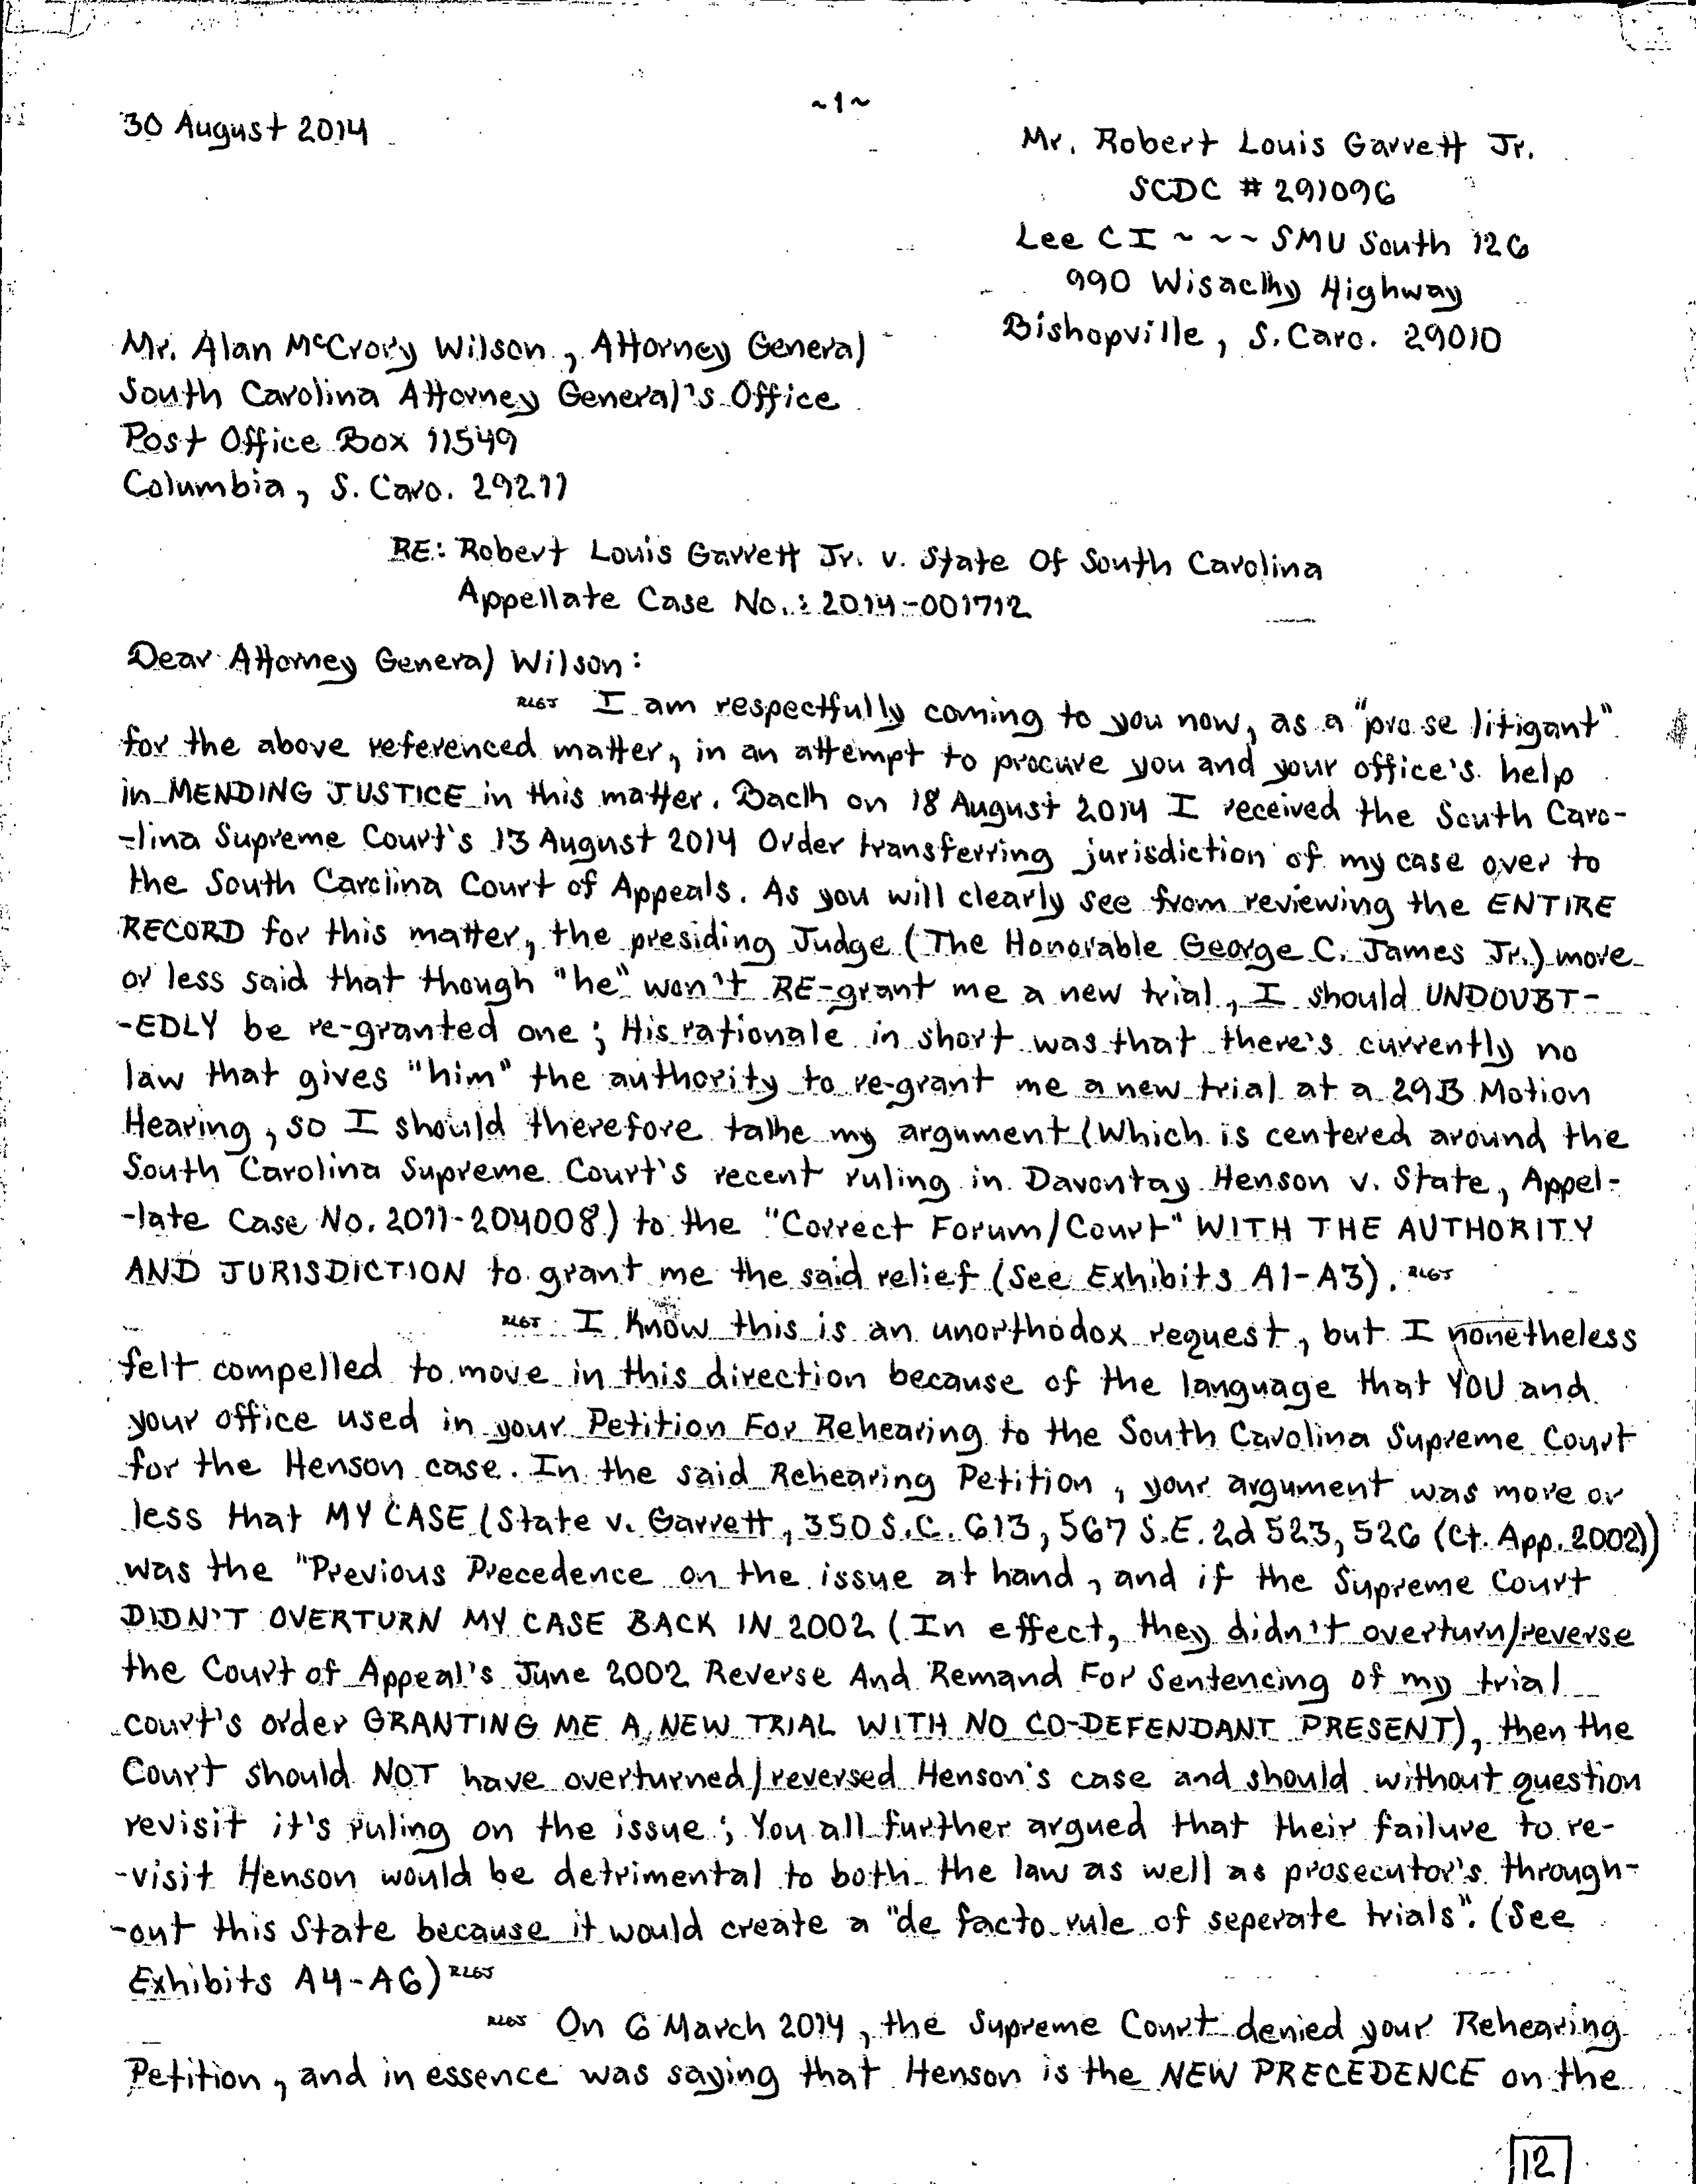 ~1~
30 August 2014
Mr. Robert Louis Garrett Jr.
SCDC # 291096
Lee CI ~ ~ ~ SMU South 126
990 Wisachy Highway
Bishopville, S. Caro. 29010
Mr. Alan McCrory Wilson, Attorney General
South Carolina Attorney General's Office
Post Office Box 11549
Columbia, S. Caro. 29211
RE: Robert Louis Garrett Jr. v. State Of South Carolina
Appellate Case No.: 2014-001712
Dear Attorney General Wilson:
RLGJ I am respectfully coming to you now, as a "pro se litigant"
for the above referenced matter, in an attempt to procure you and your office's help
in MENDING JUSTICE in this matter. Back on 18 August 2014 I received the South Caro-
-lina Supreme Court's 13 August 2014 Order transferring jurisdiction of my case over to
the South Carolina Court of Appeals. As you will clearly see from reviewing the ENTIRE
RECORD for this matter, the presiding Judge (The Honorable George C. James Jr.) more
or less said that though "he" won't RE-grant me a new trial, I should UNDOUBT-
-EDLY be re-granted one; His rationale in short was that there's currently no
law that gives "him" the authority to re-grant me a new trial at a 29B Motion
Hearing, so I should therefore take my argument (Which is centered around the
South Carolina Supreme Court's recent ruling in Davontay Henson v. State, Appel-
-late Case No. 2011-204008) to the "Correct Forum/Court" WITH THE AUTHORITY
AND JURISDICTION to grant me the said relief (See Exhibits A1-A3). RLGJ
RLGJ I know this is an unorthodox request, but I nonetheless
felt compelled to move in this direction because of the language that YOU and
your office used in your Petition For Rehearing to the South Carolina Supreme Court
for the Henson case. In the said Rehearing Petition, your argument was more or
less that MY CASE (State v. Garrett, 350 S.C. 613, 567 S.E. 2d 523, 526 (Ct. App. 2002))
was the "Previous Precedence on the issue at hand, and if the Supreme Court
DIDN'T OVERTURN MY CASE BACK IN 2002 (In effect, they didn't overturn/reverse
the Court of Appeal's June 2002 Reverse And Remand For Sentencing of my trial
court's order GRANTING ME A NEW TRIAL WITH NO CO-DEFENDANT PRESENT), then the
Court should NOT have overturned/reversed Henson's case and should without question
revisit it's ruling on the issue; You all further argued that their failure to re-
-visit Henson would be detrimental to both the law as well as prosecutor's through-
-out this State because it would create a "de facto rule of seperate trials". (See
Exhibits A4-A6) RLGJ
RLGJ On 6 March 2014, the Supreme Court denied your Rehearing
Petition, and in essence was saying that Henson is the NEW PRECEDENCE on the
12